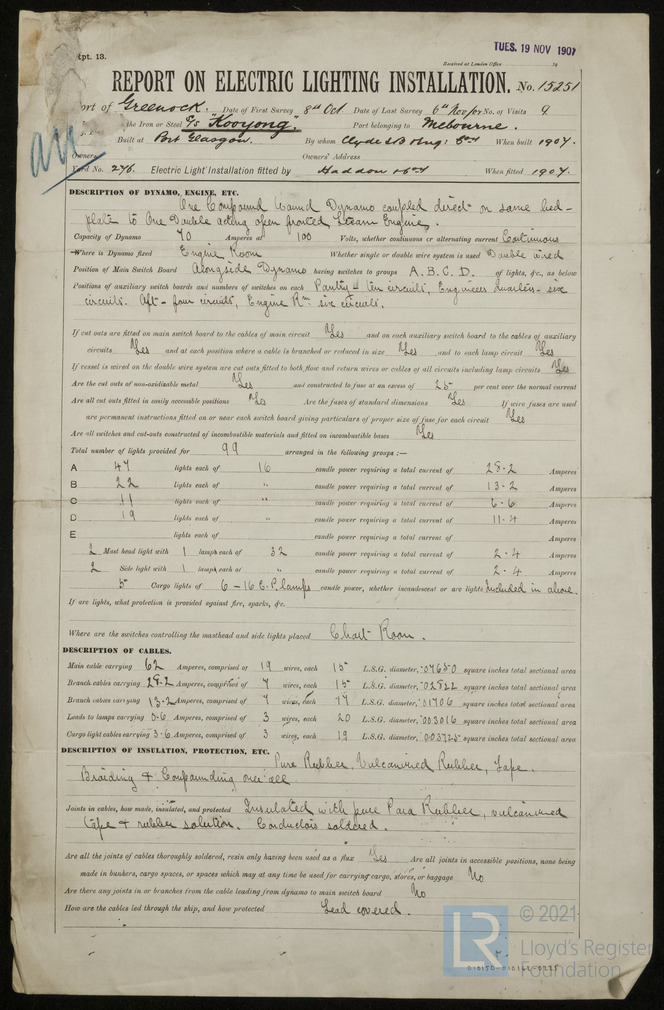 TUES. 19 NOV 1907
pt. 13.
Received at London Office 19
REPORT ON ELECTRIC LIGHTING INSTALLATION. No. 15251
ort of Greenock. Date of First Survey 8th Oct Date of Last Survey 6th Nov/07 No. of Visits 9
the Iron or Steel S/s "Kooyong". Port belonging to Melbourne.
Built at Port Glasgow. By whom Clyde S.B. & Eng: Co When built 1907.
Owners Owners' Address
Yard No. 276. Electric Light Installation fitted by Haddon & Co When fitted 1907.
DESCRIPTION OF DYNAMO, ENGINE, ETC.
One Compound Wound Dynamo coupled direct on same bed-
plate to One Double acting open fronted Steam Engine.
Capacity of Dynamo 70 Amperes at 100 Volts, whether continuous or alternating current Continuous
Where is Dynamo fixed Engine Room Whether single or double wire system is used Double wired
Position of Main Switch Board Alongside Dynamo having switches to groups A. B. C. D. of lights, &c., as below
Positions of auxiliary switch boards and numbers of switches on each Pantry - ten circuits, Engineers Quarters - six
circuits. Aft - four circuits, Engine Rm six circuits.
If cut outs are fitted on main switch board to the cables of main circuit Yes and on each auxiliary switch board to the cables of auxiliary
circuits Yes and at each position where a cable is branched or reduced in size Yes and to each lamp circuit Yes
If vessel is wired on the double wire system are cut outs fitted to both flow and return wires or cables of all circuits including lamp circuits Yes
Are the cut outs of non-oxidizable metal Yes and constructed to fuse at an excess of 25 per cent over the normal current
Are all cut outs fitted in easily accessible positions Yes Are the fuses of standard dimensions Yes If wire fuses are used
are permanent instructions fitted on or near each switch board giving particulars of proper size of fuse for each circuit Yes
Are all switches and cut-outs constructed of incombustible materials and fitted on incombustible bases Yes
Total number of lights provided for 99 arranged in the following groups :—
A 47 lights each of 16 candle power requiring a total current of 28.2 Amperes
B 22 lights each of " candle power requiring a total current of 13.2 Amperes
C 11 lights each of " candle power requiring a total current of 6.6 Amperes
D 19 lights each of " candle power requiring a total current of 11.4 Amperes
E lights each of candle power requiring a total current of Amperes
2 Mast head light with 1 lamps each of 32 candle power requiring a total current of 2.4 Amperes
2 Side light with 1 lamps each of " candle power requiring a total current of 2.4 Amperes
5 Cargo lights of 6 - 16 C.P. lamps candle power, whether incandescent or arc lights Included in above.
If arc lights, what protection is provided against fire, sparks, &c.
Where are the switches controlling the masthead and side lights placed Chart Room.
DESCRIPTION OF CABLES.
Main cable carrying 62 Amperes, comprised of 19 wires, each 15 L.S.G. diameter, .07650 square inches total sectional area
Branch cables carrying 28.2 Amperes, comprised of 7 wires, each 15 L.S.G. diameter, .02822 square inches total sectional area
Branch cables carrying 13.2 Amperes, comprised of 7 wires, each 17 L.S.G. diameter, .01706 square inches total sectional area
Leads to lamps carrying 3.6 Amperes, comprised of 3 wires, each 20 L.S.G. diameter, .003016 square inches total sectional area
Cargo light cables carrying 3.6 Amperes, comprised of 3 wires, each 19 L.S.G. diameter, .003725 square inches total sectional area
DESCRIPTION OF INSULATION, PROTECTION, ETC.
Pure Rubber, Vulcanised Rubber, Tape.
Braiding & Compounding over all
Joints in cables, how made, insulated, and protected Insulated with pure Para Rubber, vulcanised
tape & rubber solution. Conductors soldered.
Are all the joints of cables thoroughly soldered, resin only having been used as a flux Yes Are all joints in accessible positions, none being
made in bunkers, cargo spaces, or spaces which may at any time be used for carrying cargo, stores, or baggage No
Are there any joints in or branches from the cable leading from dynamo to main switch board No
How are the cables led through the ship, and how protected Lead covered.
LR
© 2021
Lloyd's Register
Foundation